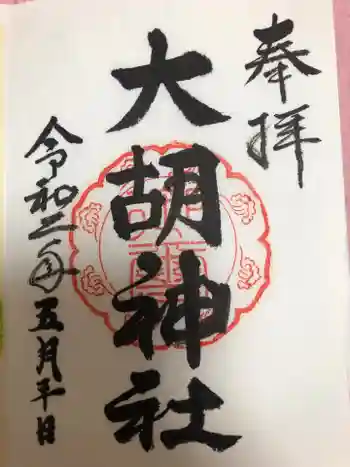 奉拝
大胡神社
令和二年五月三十日